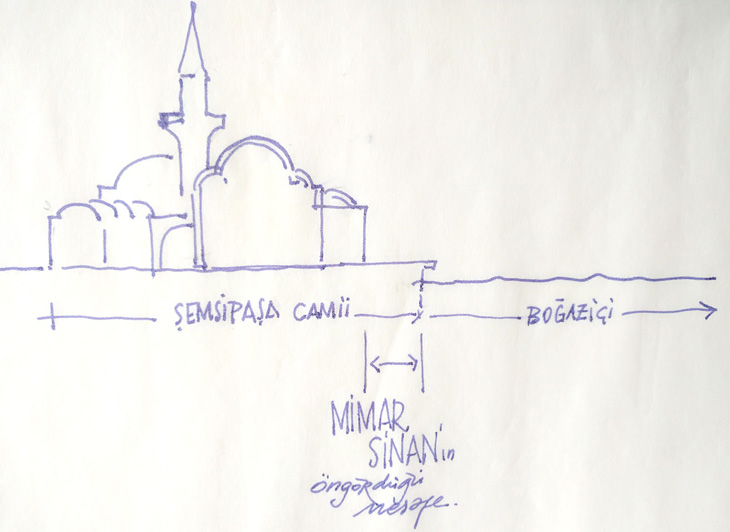 ŞEMSİPAŞA CAMİİ
BOĞAZİÇİ
MİMAR
SİNAN'in
öngördüğü
mesafe.